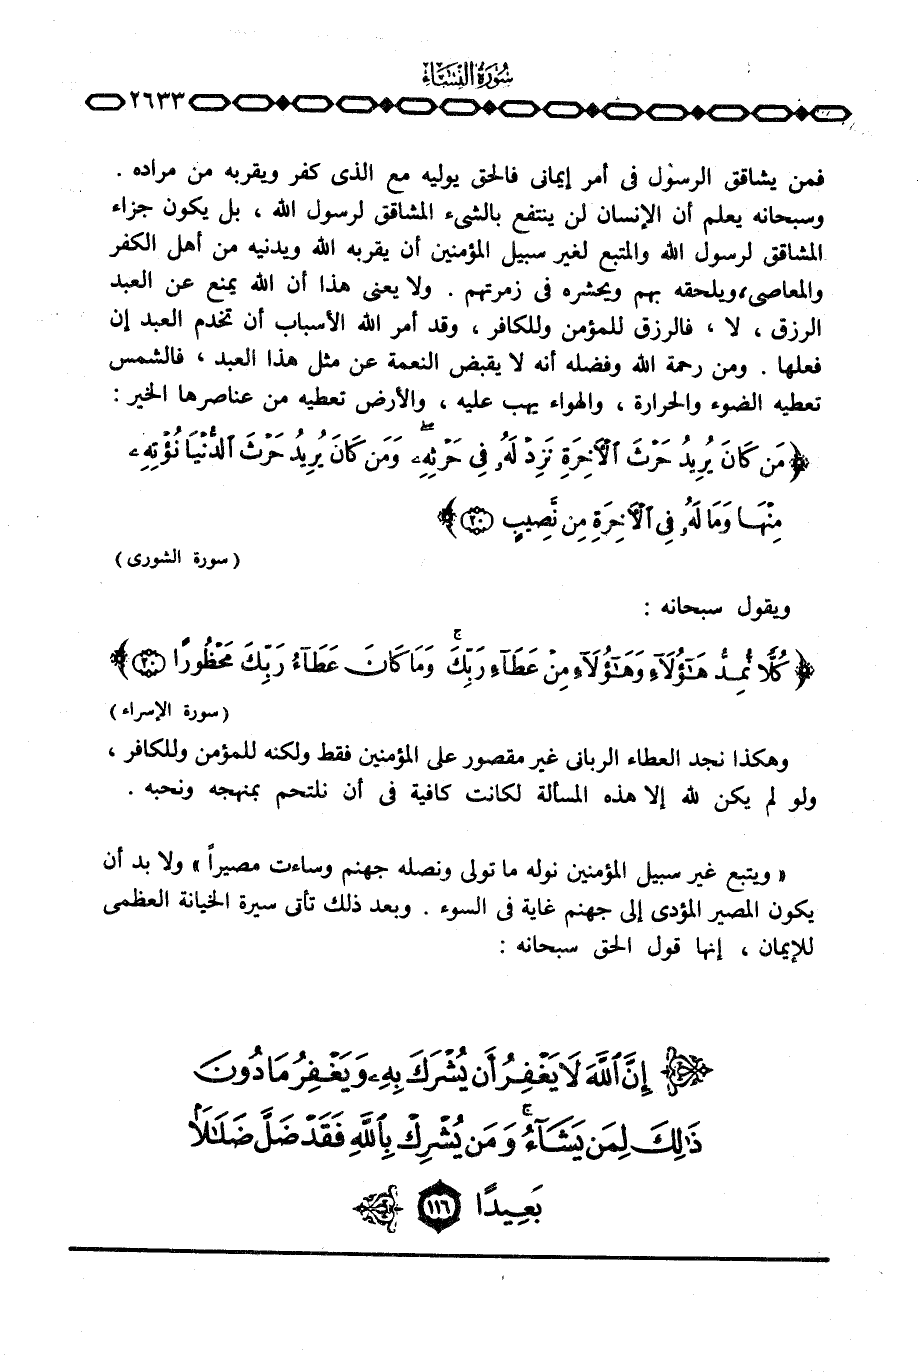 سُورَةُ النِّسَاءِ
٢٦٣٣
فمن يشاقق الرسول فى أمر إيمانى فالحق يوليه مع الذى كفر ويقربه من مراده .
وسبحانه يعلم أن الإنسان لن ينتفع بالشىء المشاقق لرسول الله ، بل يكون جزاء
المشاقق لرسول الله والمتبع لغير سبيل المؤمنين أن يقربه الله ويدنيه من أهل الكفر
والمعاصى ، ويلحقه بهم ويحشره فى زمرتهم . ولا يعنى هذا أن الله يمنع عن العبد
الرزق ، لا ، فالرزق للمؤمن وللكافر ، وقد أمر الله الأسباب أن تخدم العبد إن
فعلها . ومن رحمة الله وفضله أنه لا يقبض النعمة عن مثل هذا العبد ، فالشمس
تعطيه الضوء والحرارة ، والهواء يهب عليه ، والأرض تعطيه من عناصرها الخير :
﴿ مَن كَانَ يُرِيدُ حَرْثَ ٱلْـَٔاخِرَةِ نَزِدْ لَهُۥ فِى حَرْثِهِۦ ۖ وَمَن كَانَ يُرِيدُ حَرْثَ ٱلدُّنْيَا نُؤْتِهِۦ
مِنْهَا وَمَا لَهُۥ فِى ٱلْـَٔاخِرَةِ مِن نَّصِيبٍ ٢٠ ﴾
( سورة الشورى )
ويقول سبحانه :
﴿ كُلًّا نُّمِدُّ هَـٰٓؤُلَآءِ وَهَـٰٓؤُلَآءِ مِنْ عَطَآءِ رَبِّكَ ۚ وَمَا كَانَ عَطَآءُ رَبِّكَ مَحْظُورًا ٢٠ ﴾
( سورة الإسراء )
وهكذا نجد العطاء الربانى غير مقصور على المؤمنين فقط ولكنه للمؤمن وللكافر ،
ولو لم يكن لله إلا هذه المسألة لكانت كافية فى أن نلتحم بمنهجه ونحبه .
« ويتبع غير سبيل المؤمنين نوله ما تولى ونصله جهنم وساءت مصيراً » ولا بد أن
يكون المصير المؤدى إلى جهنم غاية فى السوء . وبعد ذلك تأتى سيرة الخيانة العظمى
للإيمان ، إنها قول الحق سبحانه :
إِنَّ ٱللَّهَ لَا يَغْفِرُ أَن يُشْرَكَ بِهِۦ وَيَغْفِرُ مَا دُونَ
ذَٰلِكَ لِمَن يَشَآءُ ۚ وَمَن يُشْرِكْ بِٱللَّهِ فَقَدْ ضَلَّ ضَلَـٰلًۢا
بَعِيدًا ١١٦